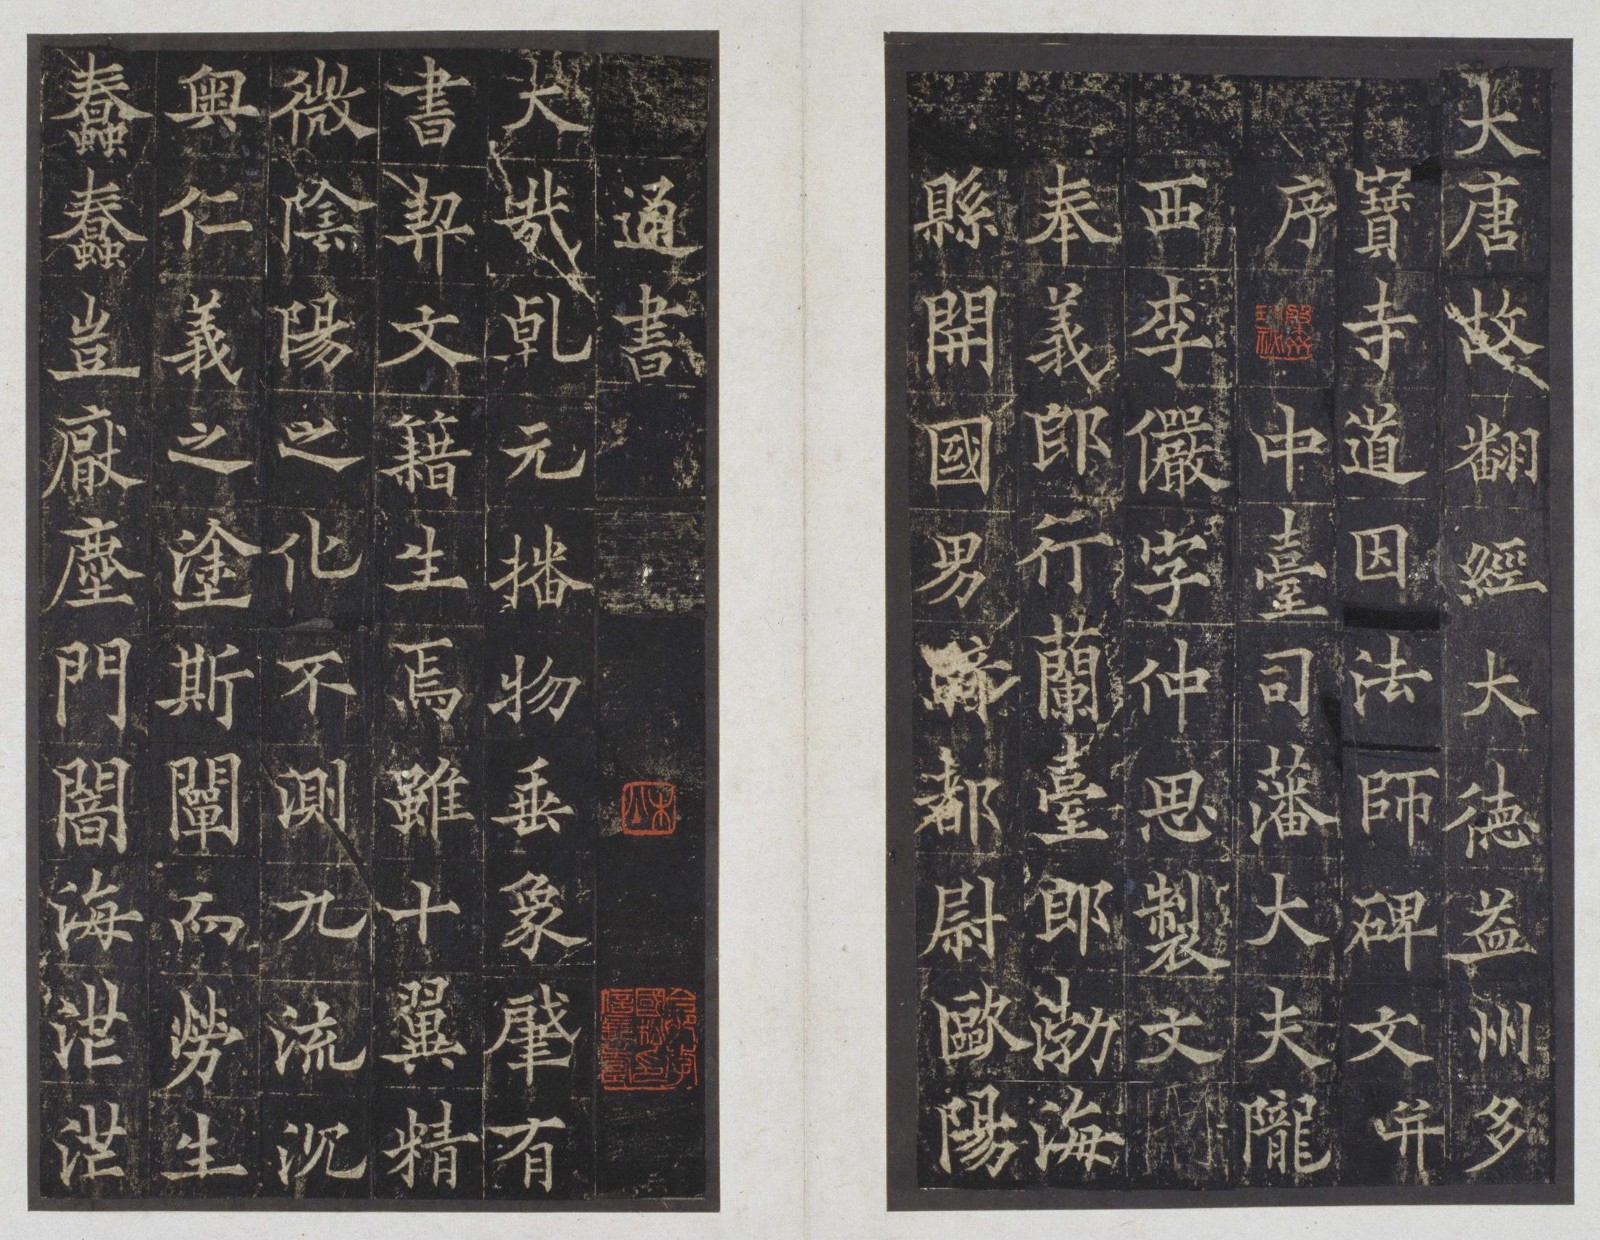 大唐故翻經大德益州多
寶寺道因法師碑文并
序 中臺司藩大夫隴
西李儼字仲思製文
奉義郎行蘭臺郎渤海
縣開國男騎都尉歐陽
通書
大哉乹元播物垂象肈有
書契文籍生焉雖十翼精
微陰陽之化不測九流沉
奥仁義之塗斯闡而勞生
蠢蠢豈厭塵門闇海茫茫